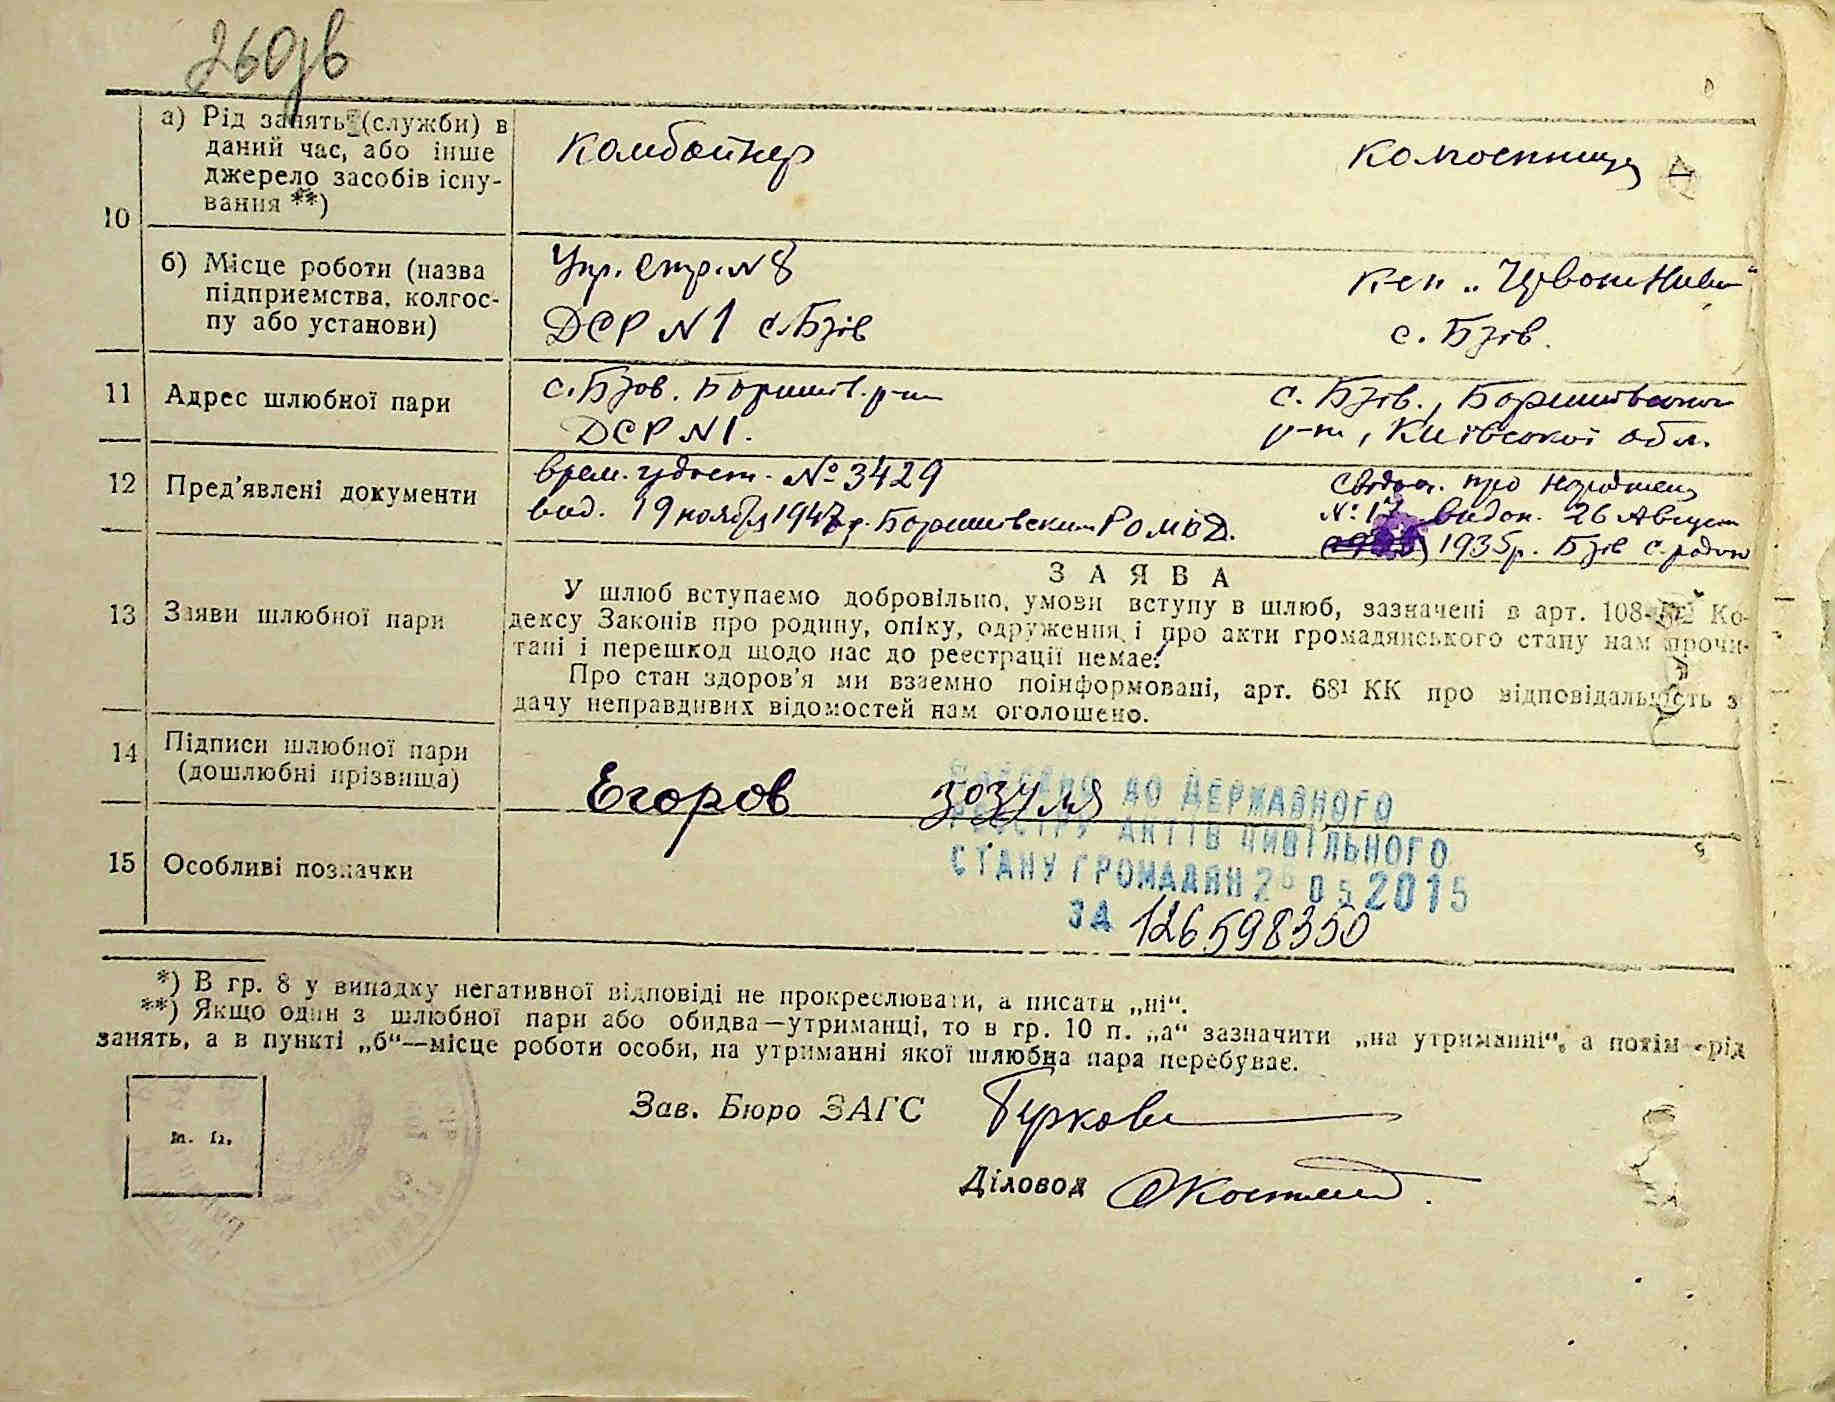 260зв
а) Рід занять (служби) в
даний час, або інше
джерело засобів існу-
вання **)
Комбайнер
Колгоспниця
10
б) Місце роботи (назва
підприємства, колгос-
пу або установи)
Упр. Стр. N 8
ДСР N 1 с. Бзів
с. Бзів.
11
Адрес шлюбної пари
с. Бзов. Боришів. р-н
ДСР N 1.
с. Бзів., Боришівського
р-н, Київської обл.
12
Пред'явлені документи
врем. удост. № 3429
вид. 19 ноября 1947 г. Боришівским РОМВД.
Свідоц. про народжен
видан. 26 Август
1935р. Бзів с. радою
З А Я В А
13
Заяви шлюбної пари
У шлюб вступаємо добровільно, умови вступу в шлюб, зазначені в арт. 108- Ко-
дексу Законів про родину, опіку, одруження і про акти громадянського стану нам прочи-
тані і перешкод щодо нас до реєстрації немає.
Про стан здоров'я ми взаємно поінформовані, арт. 68¹ КК про відповідальність з
дачу неправдивих відомостей нам оголошено.
14
Підписи шлюбної пари
(дошлюбні прізвища)
Егоров
Зозуля
15
Особливі позначки
ВНЕСЕНО ДО ДЕРЖАВНОГО
РЕЄСТРУ АКТІВ ЦИВІЛЬНОГО
СТАНУ ГРОМАДЯН 2 05 2015
ЗА 126598350
*) В гр. 8 у випадку негативної відповіді не прокреслювати, а писати „ні“.
**) Якщо один з шлюбної пари або обидва—утриманці, то в гр. 10 п. „а“ зазначити „на утриманні“, а потім - рід
занять, а в пункті „б“—місце роботи особи, на утриманні якої шлюбна пара перебуває.
м. п.
Зав. Бюро ЗАГС
Діловод